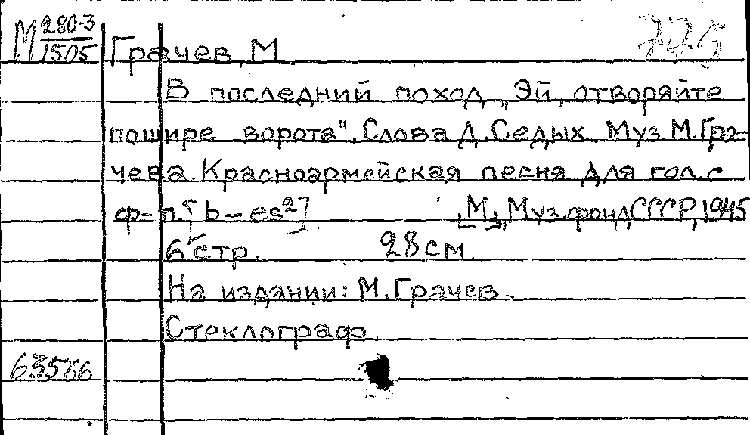 М 280-3
1505
Грачев, М
В последний поход „Эй, отворяйте
пошире ворота". Слова Д. Седых Муз М. Гра-
чева. Красноармейская песня для гол. с
ф-п. [b-es²]   [М], Муз. фонд СССР, 1945
6 стр.   28 см
На издании: М. Грачев.
Стеклограф
63566